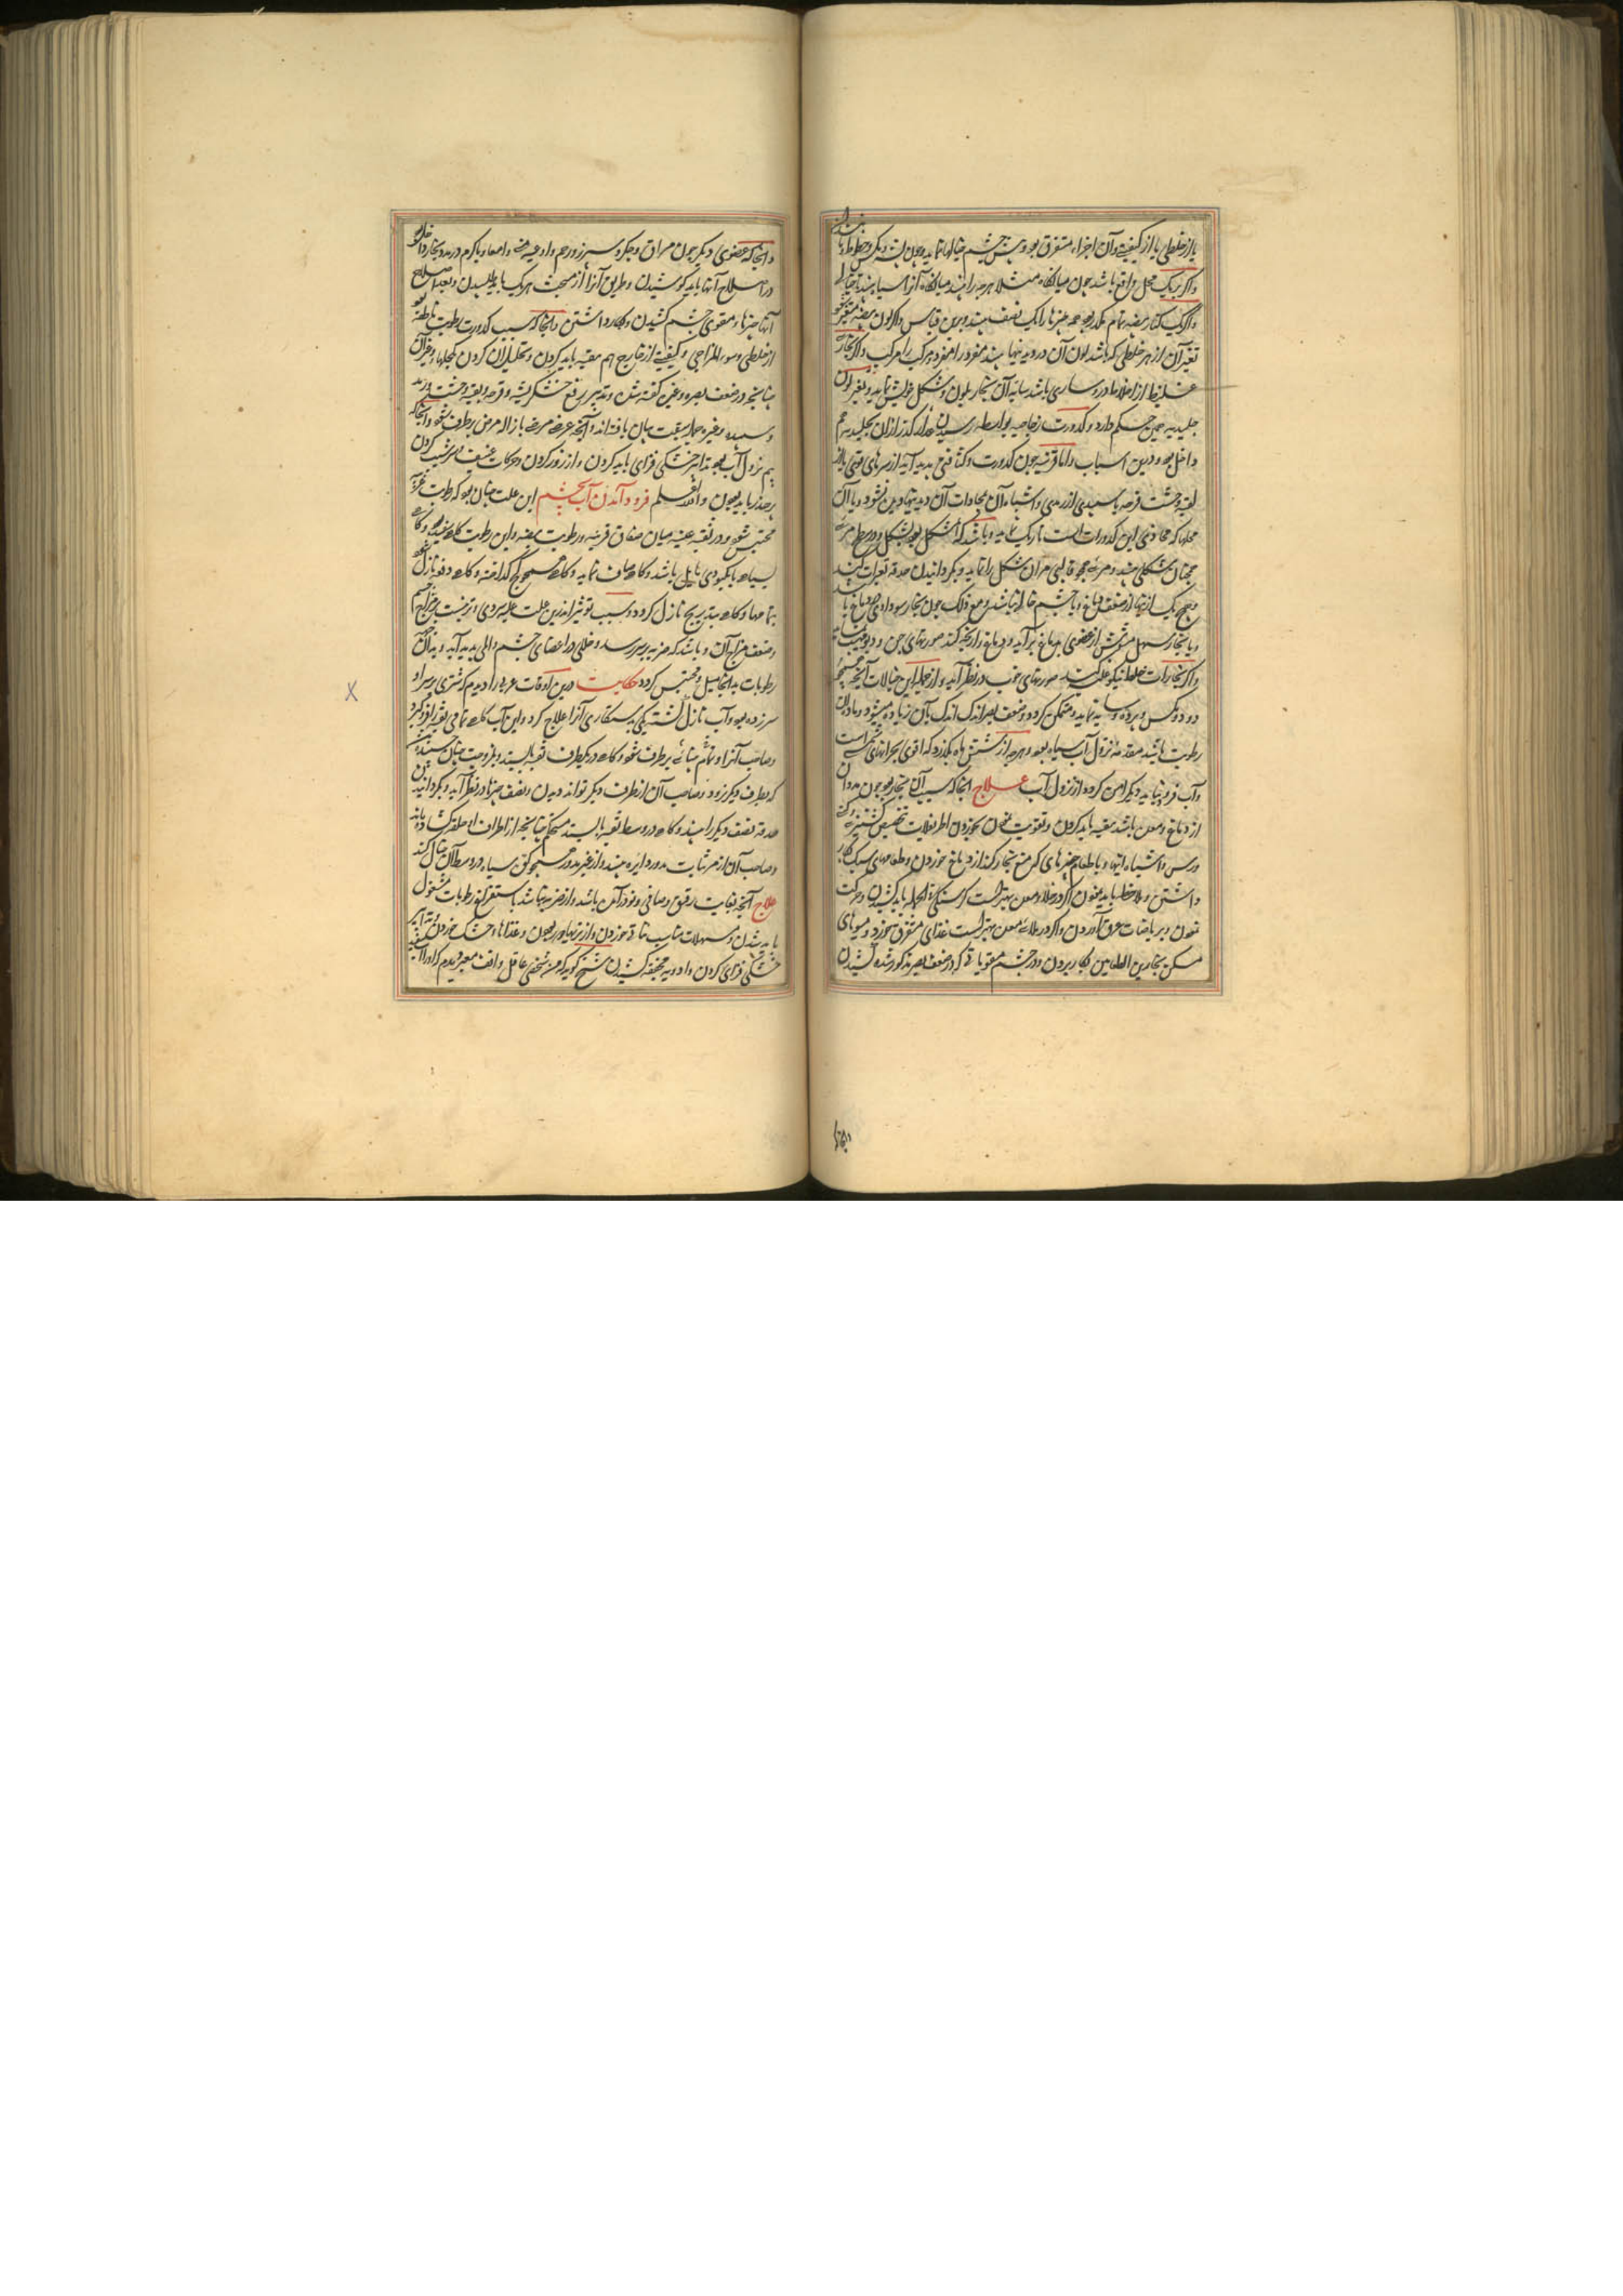 یا از خلطی یا از کیفیتی و آن اجزاء متفرق بود پیش چشم خیالها نماید چون پشه و مگس و خطوط و یا
واگر بیک محل واقع باشد چون میانگاه مثلا هرچه را بیند میانگاه آنرا سیاه بیند
واگر یک کنار بیضه تمام مکدر بود همه چیزها را یک نصف بیند و برین قیاس واگر لون بیضه متغیر شود
تغیر آن از هر خلطی که باشد لون آن در دیدنیها بیند مفرد را مفرد و مرکب را مرکب واگر بخار
غلیظ از اخلاط در وی ساری باشد سایه آن بخار بلون و شکل خویش نماید و تغیر لون
جلیدیه همین حکم دارد و کدورت زجاجیه بواسطه رسیدن مدد کدر از آن بجلیدیه هم
داخل بود درین اسباب واما قرنیه چون کدورت و کثافتی پدید آید از سرمای قوی یا از
بقیه وحشت قرحه یا سبیدی از رمدی و اشباه آن محاذات آن دیدنیها دیدن نشود و یا آن
محلها که محاذی این کدورات است تاریک نماید و باشد که
همچنان مشکلی بیند و
وهیچ یک از اینها از ضعف دماغ و یا چشم خالی نباشد مع ذلک چون بخار سوداوی در دماغ یا
و یا بخار مسهل مشوش از عضوی بدماغ برآید و دماغ را رنجه کند صورتهای جن و دیو
واگر بخارات خلط نیکو غلبه کند صورتهای خوب در نظر آید و از جمله این خیالات آنچه
دود و مگس و پرده و سایه نماید و متمکن گردد و ضعف بصر اندک اندک بآن زیاده میشود و ماده آن
رطوبت باشد مقدمه نزول آب سیاه بود و هرچه از شش ماه بگذرد که اقوی بحرانهای
وآب فرو نیاید دیگر ایمن گردد از نزول آب علاج آنجا که سبب آن بخار بود چون مدد آن
از دماغ و معده باشد تنقیه باید کردن و تقویت نمودن بخوردن اطریفلات بتخصیص کشنیزی
و اشباه اینها و با طعام چیزهای که منع بخار کند از دماغ خوردن و طعامهای سبک بکار
داشتن و ملاحظه باید نمودن اگر در خلاء معده بهتر است گرسنگی فی الجمله باید کشیدن و حرکت
نمودن و بریاضات عرق آوردن واگر در ملاء معده بهتر است غذای متفرق بخورد و میوهای
مسکن بخار بین الطعامین بکار بردن و در چشم مقویات که در ضعف بصر مذکور شده کشیدن
وآنجا
وآنجا که عضوی دیگر چون مراق و جگر و سپرز و رحم و اوعیه منی و امعا و یا کرم در مدد بخار داخل بود
در اصلاح آنها باید کوشیدن و طریق آنرا از مبحث هر یک باید طلبیدن و بعد از اصلاح
آنها چیزهاء مقوی چشم کشیدن و بکار داشتن وآنجا که سبب کدورت رطوبت
از خلطی و سوء المزاجی و کیفیتی از خارج هم تنقیه باید کردن و تحلیل آن کردن بکحلها و غیر آن
چنانچه در ضعف بصر و غیره گفته شد و تدبیر رفع خشک ریشه و قرحه و بقیه وحشت رمد
و سبیده و غیره جمله سبقت بیان یافته اند وآنچه عرض مرضی بازاله مرض برطرف شود وآنجا که
بیم نزول آب بود تدابیر خشکی فزای باید کردن و از زور کردن و حرکات عنیف و سر شیب کردن
برحذر باید بودن والله اعلم فرود آمدن آب بچشم این علت چنان بود که رطوبت غریب
محتبس شود در ثقبه عنبیه میان صفاق قرنیه و رطوبت بیضیه و این رطوبت گاه سفید بود و گاه
سیاه یا بکبودی مایل باشد و گاه صاف نماید و گاه همچو گچ گداخته و گاه دفعه نازل شود
بتمامها و گاه بتدریج نازل گردد و سبب قوی تر اندرین علت غلبه سردی و تریست بر مزاج چشم
وضعف مزاج آن و باشد که ضربه بر سر رسد و خللی در اعضای چشم و المی پدید آید و بدان
رطوبات بدانجا میل و محتبس گردد حکایت درین اوقات عربی را دیدم که شتری بر سر او
سر زده بود و آب نازل گشته یکی بدستکاری آنرا علاج کرد و این آب گاه تمامی ثقبه را فرو گیرد
وصاحب آنرا تمام بینائی برطرف شود و گاه در یکطرف ثقبه بایستد و بلزوجت چنان
که بطرف دیگر نرود و صاحب آن از طرف دیگر تواند دیدن و نصف چیزها در نظر آید و بگردانیدن
حدقه نصف دیگر را بیند و گاه در وسط ثقبه بایستد مستحکم چنانچه از اطراف او حلقه گشاده باشد
وصاحب آن از مرئیات مدور دایره بیند و از غیر مدور همچو کوی سیاه در وسط آن خیال کند
علاج آنچه بغایت رقیق و صافی و نو درآمده باشد و از ضربه نباشد باستفراغ رطوبات مشغول
باید شدن و مسهلات مناسب خوردن و از تریها دور بودن و غذاهاء خشک خوردن و تدابیر
خشکی فزای کردن و ادویه مجففه کشیدن شیخ گوید که من شخصی عاقل واقف معتبر دیدم که او را